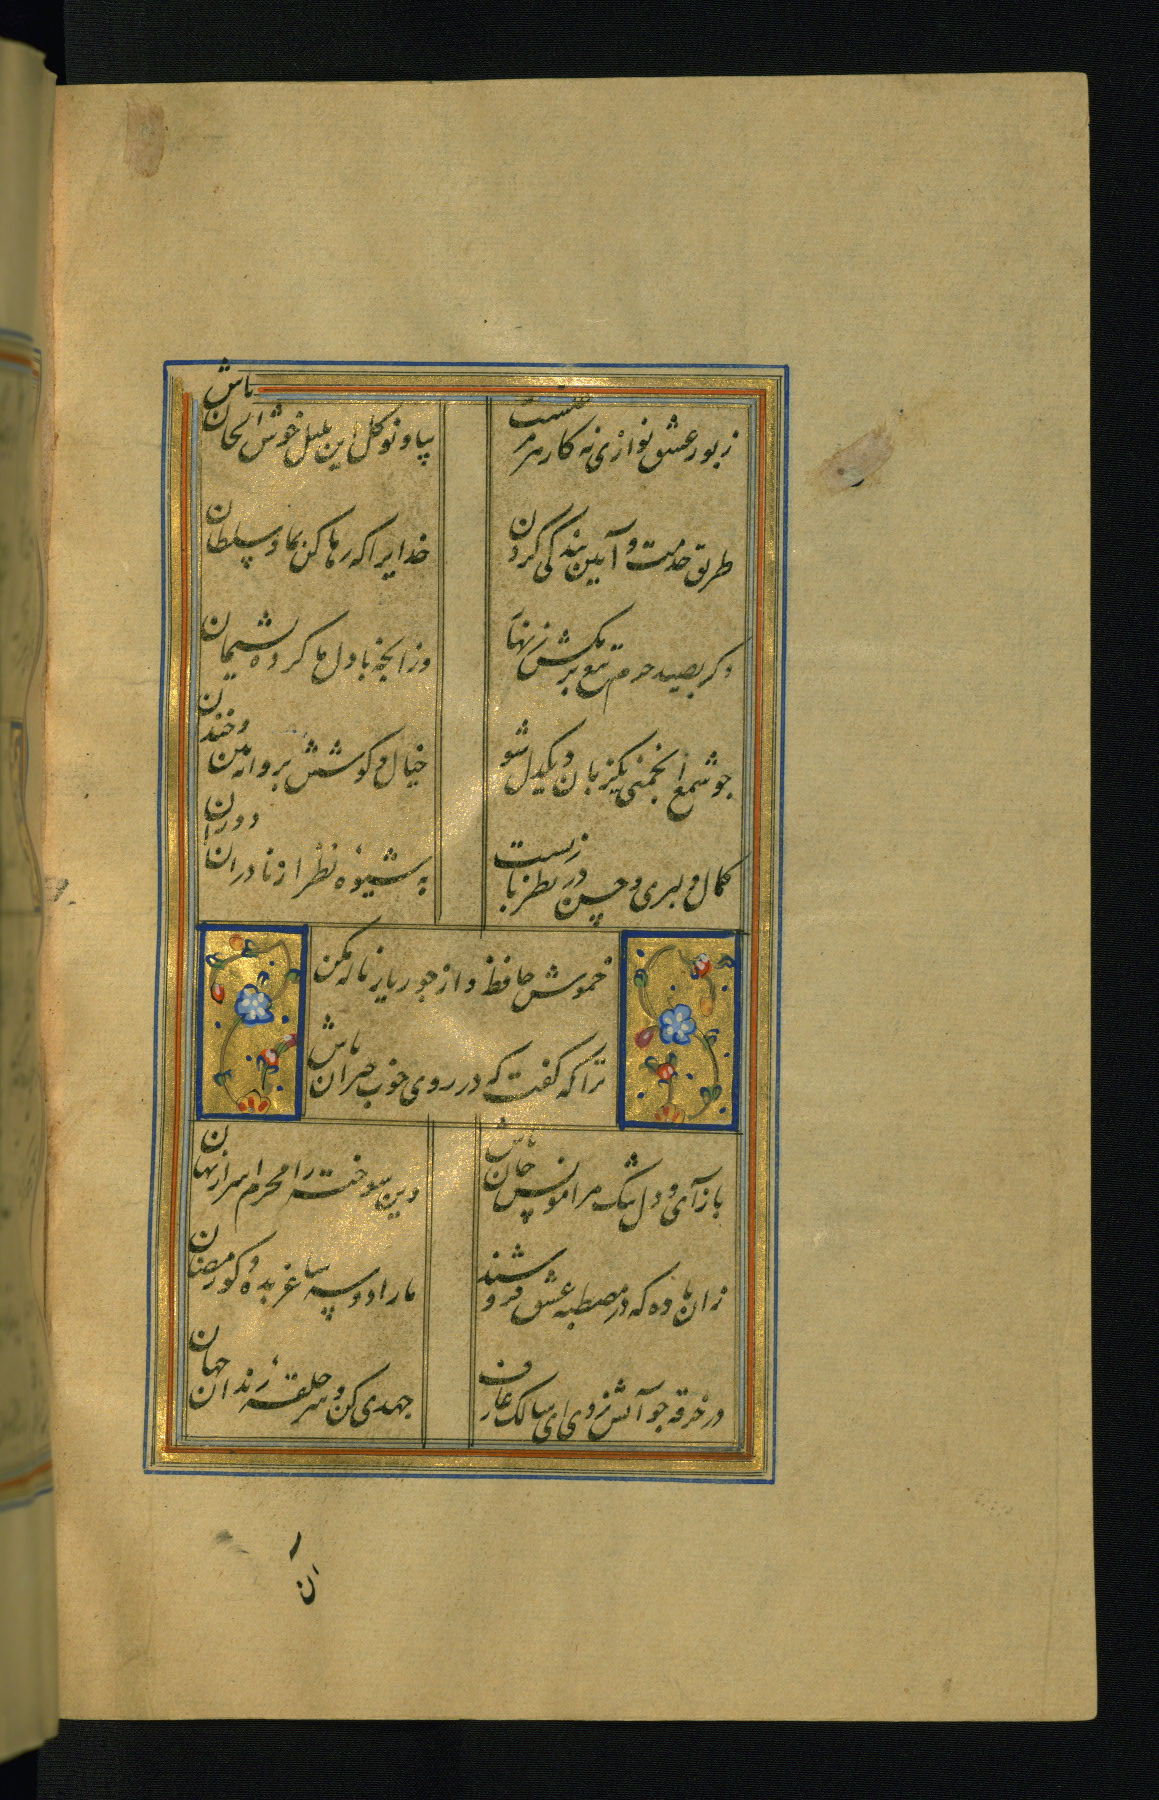 زبور عشق نوازی نه کار هر مرغیست
بیا و نوگل این بلبل خوش الحان باش
طریق خدمت و آیین بندگی کردن
خدایرا که رها کن بما و سلطان باش
دگر بصید حرم تیغ برمکش زنهار
وز انچه با دل ما کرده پشیمان باش
چو شمع انجمنی یکزبان و یکدل شو
خیال و کوشش پروانه بین و خندان باش
کمال دلبری و حسن در نظر بازیست
به شیوه نظر از نادران دوران باش
خموش حافظ و از جور یار ناله مکن
ترا که گفت که در روی خوب حیران باش
بازآی و دل تنگ مرا مونس جان باش
وین سوخته را محرم اسرار نهان باش
زان باده که در مصطبه عشق فروشند
ما را دو سه ساغر بده و گو رمضان باش
در خرقه چو آتش زدی ای سالک عارف
جهدی کن و سر حلقه رندان جهان باش